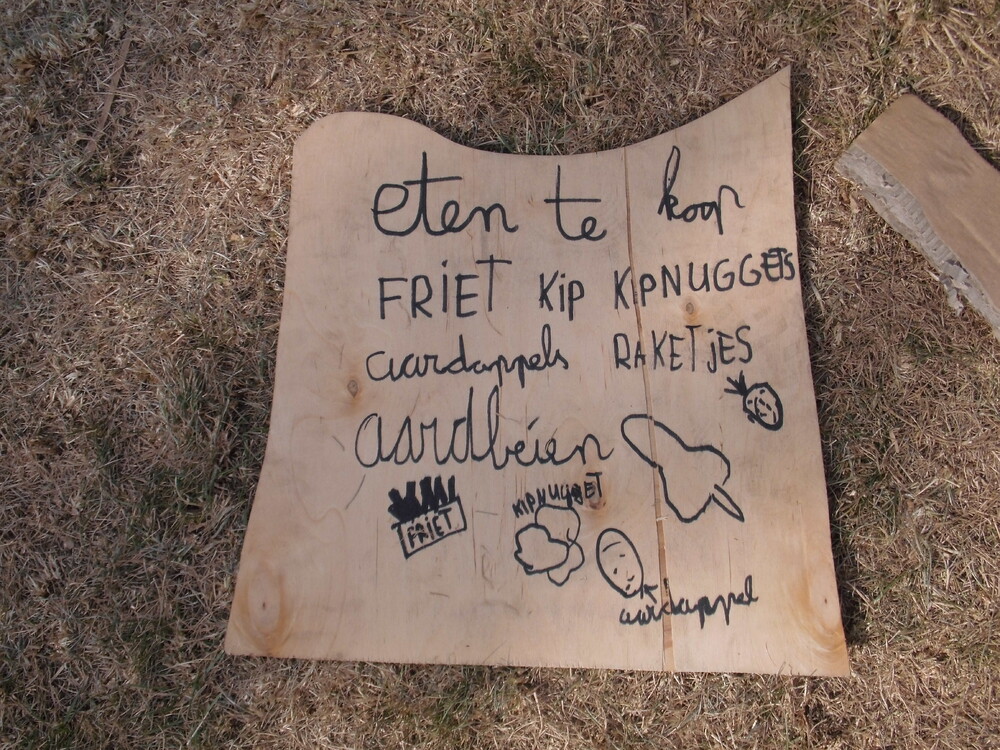 eten te koop
FRIET Kip KIPNUGGETS
aardappels RAKETjES
aardbeien
KIPNUGGET
FRIET
aardappel